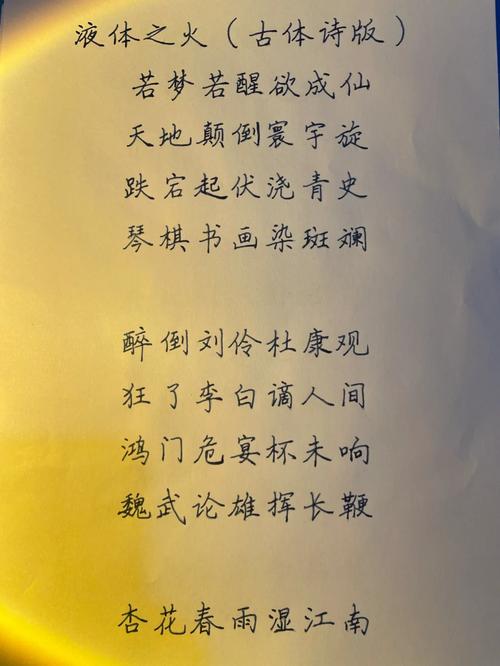 液体之火（古体诗版）
若梦若醒欲成仙
天地颠倒寰宇旋
跌宕起伏浇青史
琴棋书画染斑斓
醉倒刘伶杜康观
狂了李白谪人间
鸿门危宴杯未响
魏武论雄挥长鞭
杏花春雨湿江南